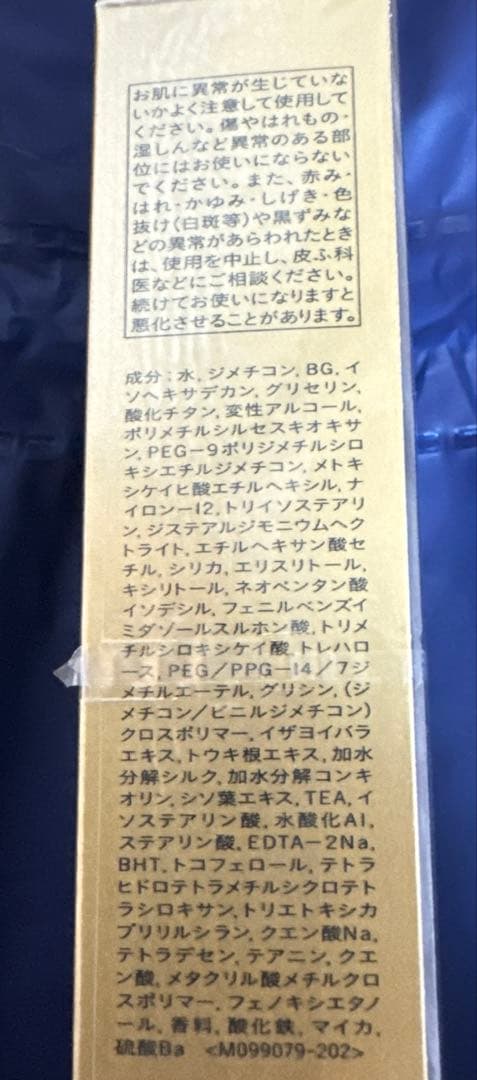 お肌に異常が生じていな
いかよく注意して使用して
ください。傷やはれもの・
湿しんなど異常のある部
位にはお使いにならない
でください。また、赤み・
はれ・かゆみ・しげき・色
抜け(白斑等)や黒ずみな
どの異常があらわれたとき
は、使用を中止し、皮ふ科
医などにご相談ください。
続けてお使いになりますと
悪化させることがあります。
成分:水, ジメチコン, BG, イ
ソヘキサデカン, グリセリン,
酸化チタン, 変性アルコール,
ポリメチルシルセスキオキサ
ン, PEG-9ポリジメチルシロ
キシエチルジメチコン, メトキ
シケイヒ酸エチルヘキシル, ナ
イロン-12, トリイソステアリ
ン, ジステアルジモニウムヘク
トライト, エチルヘキサン酸セ
チル, シリカ, エリスリトール,
キシリトール, ネオペンタン酸
イソデシル, フェニルベンズイ
ミダゾールスルホン酸, トリメ
チルシロキシケイ酸, トレハロ
ース, PEG/PPG-14/7ジ
メチルエーテル, グリシン, (ジ
メチコン/ビニルジメチコン)
クロスポリマー, イザヨイバラ
エキス, トウキ根エキス, 加水
分解シルク, 加水分解コンキ
オリン, シソ葉エキス, TEA, イ
ソステアリン酸, 水酸化Al,
ステアリン酸, EDTA-2Na,
BHT, トコフェロール, テトラ
ヒドロテトラメチルシクロテト
ラシロキサン, トリエトキシカ
プリリルシラン, クエン酸Na,
テトラデセン, テアニン, クエ
ン酸, メタクリル酸メチルクロ
スポリマー, フェノキシエタノ
ール, 香料, 酸化鉄, マイカ,
硫酸Ba <M099079-202>